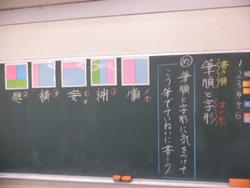 1
2
3
4
5
6
筆順と字形
め 筆順と字形に気をつけて
こう筆でていねいに書こう。
順
安
積
想